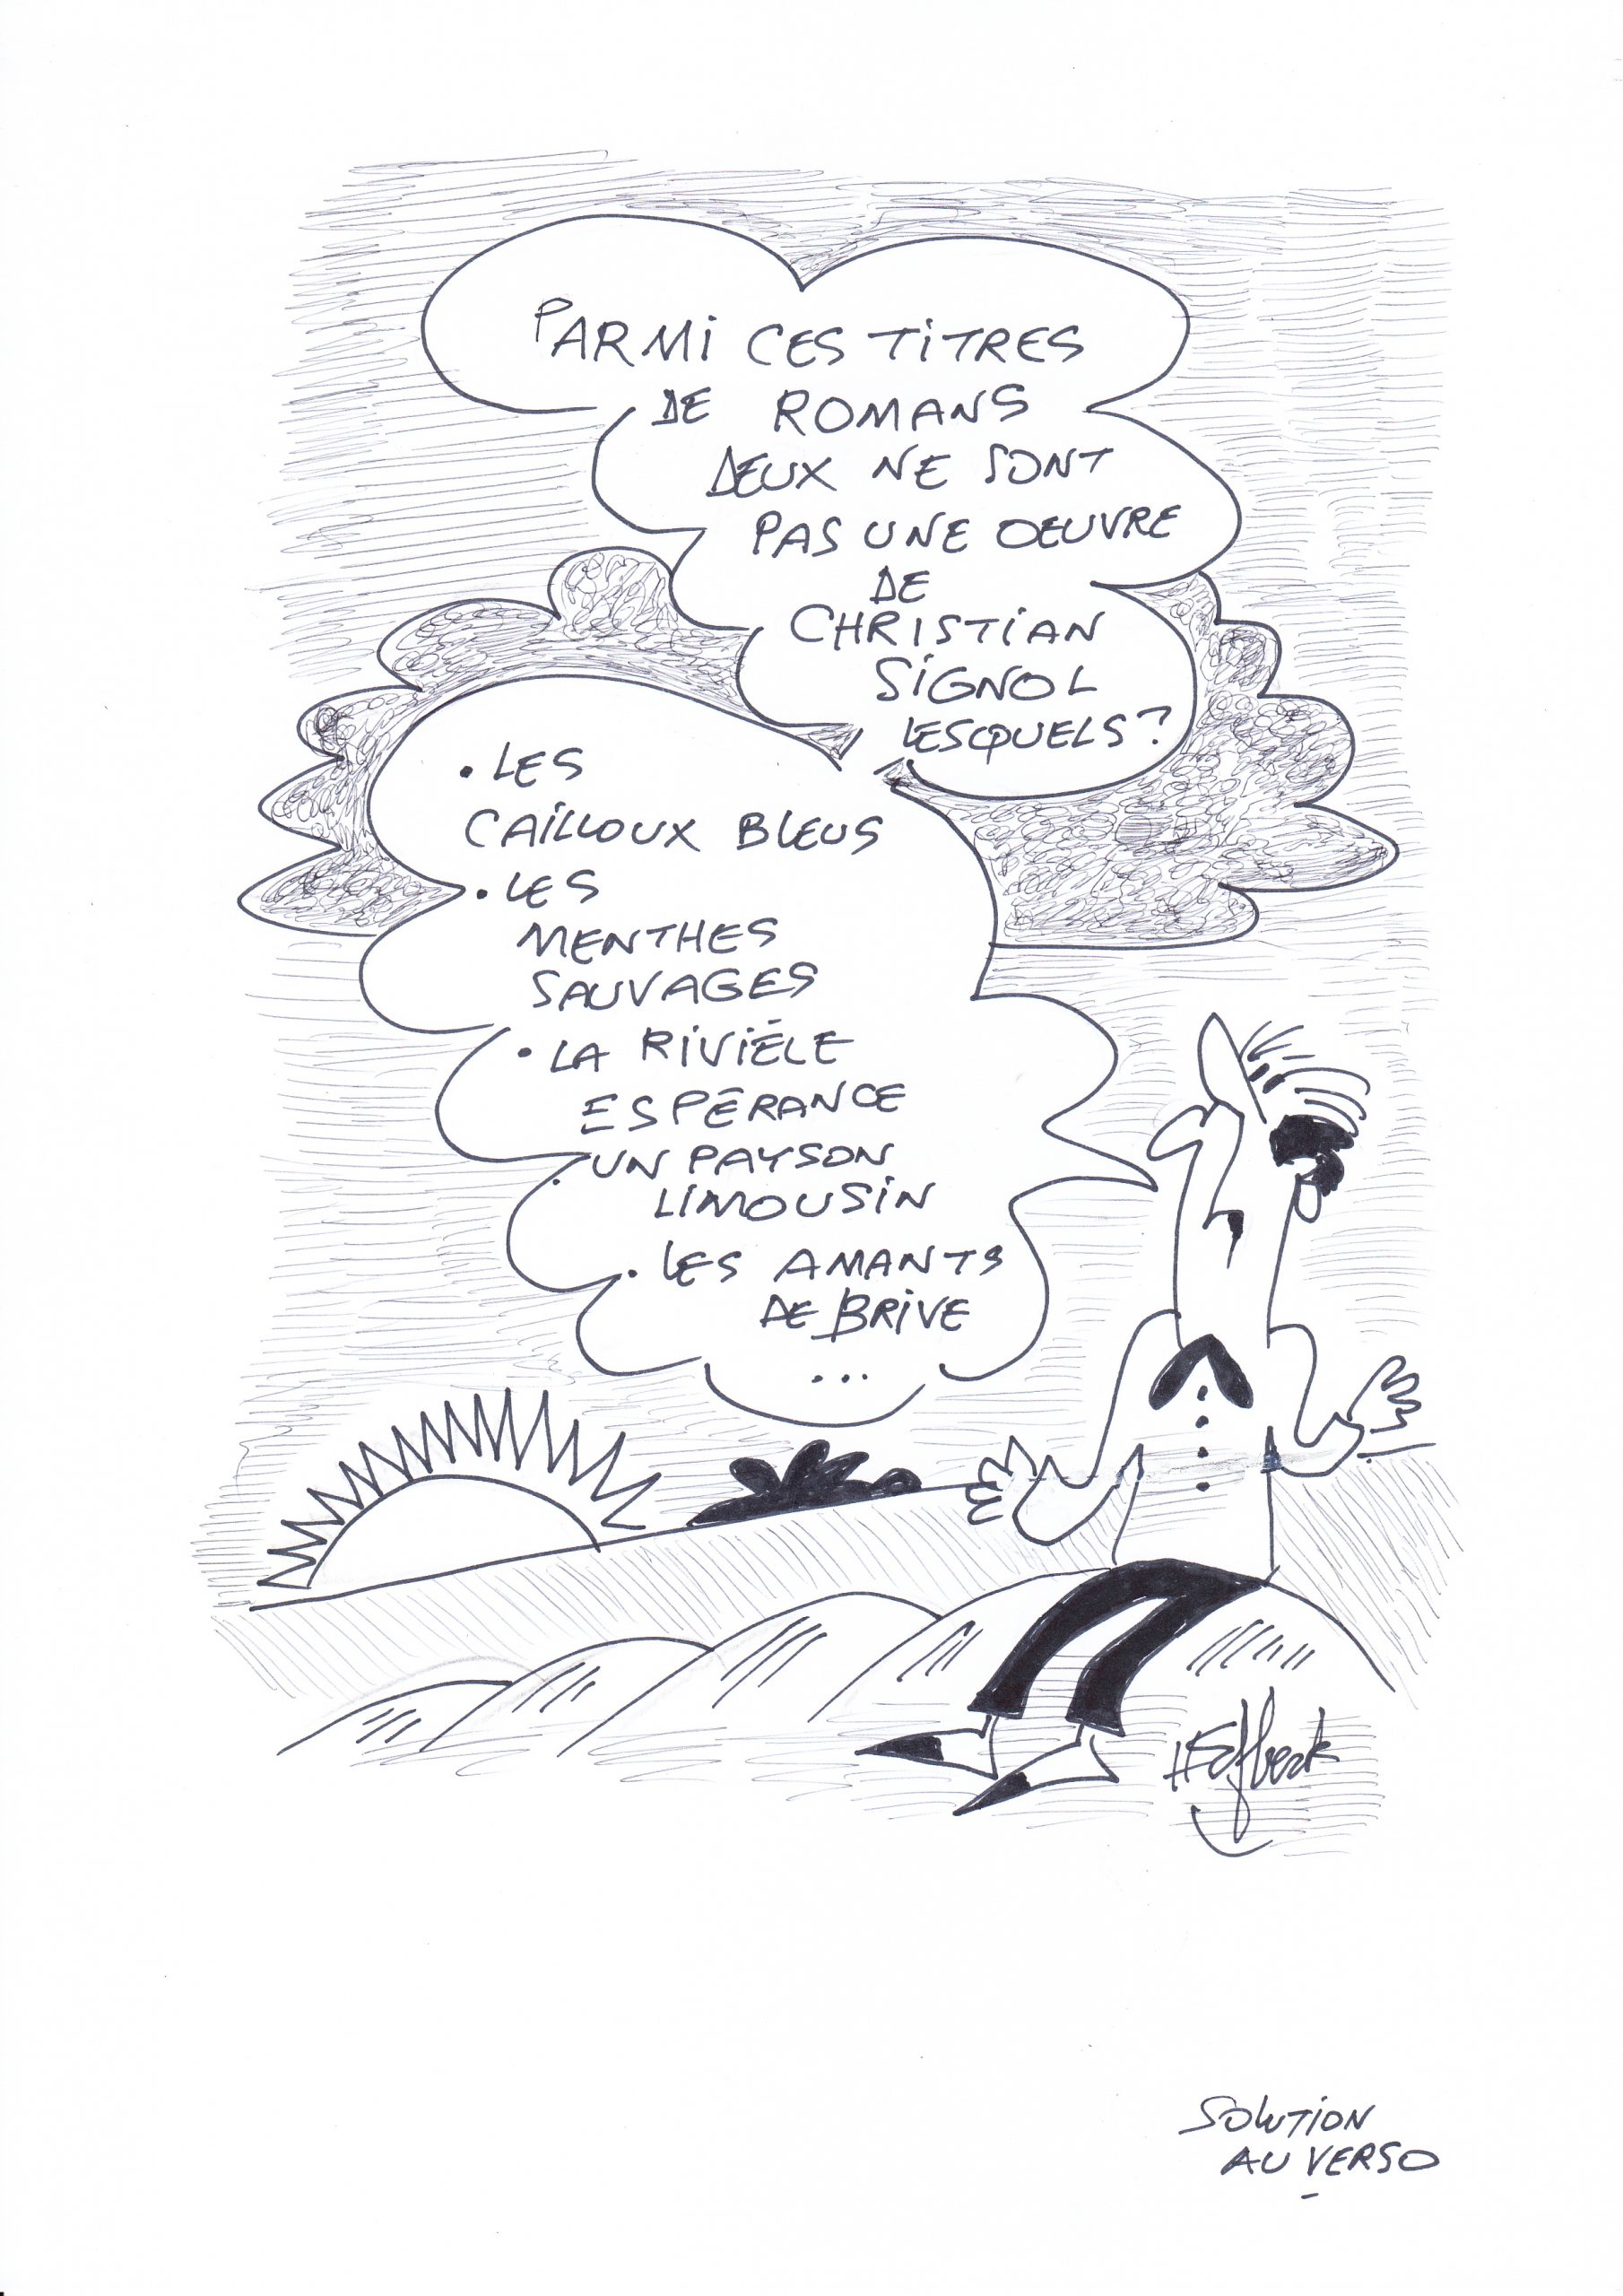 PARMI CES TITRES
DE ROMANS
DEUX NE SONT
PAS UNE OEUVRE
DE
CHRISTIAN
SIGNOL
LESQUELS?
• LES
CAILLOUX BLEUS
• LES
MENTHES
SAUVAGES
• LA RIVIÈLE
ESPÉRANCE
• UN PAYSON
LIMOUSIN
• LES AMANTS
DE BRIVE
...
SOLUTION
AU VERSO